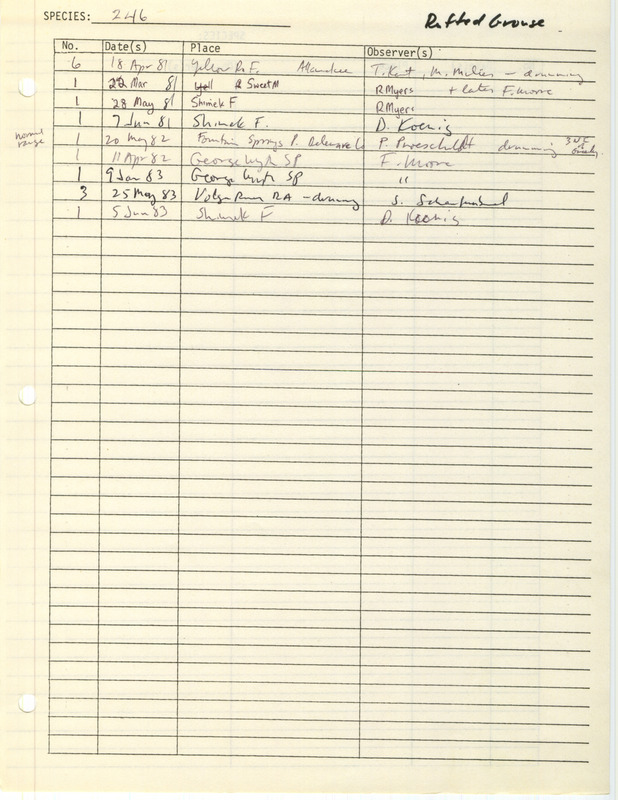 SPECIES: 246 Ruffed Grouse
No. Date(s) Place Observer(s)
6 18 Apr 81 Yellow R. F. Allamakee T. Kent, M. Mulin – drumming
1 22 Mar 81 Yell R Sweet M R Myers + later F. Moore
1 28 May 81 Shimek F R Myers
1 7 Jun 81 Shimek F. D. Koenig
normal range
1 20 May 82 Fountain Springs P. Delaware Co P. Proescholdt drumming
1 11 Apr 82 George Wyth SP F. Moore
1 9 Jan 83 George Wyth SP "
3 25 May 83 Volga River RA – drumming S.
1 5 Jun 83 Shimek F D. Koenig